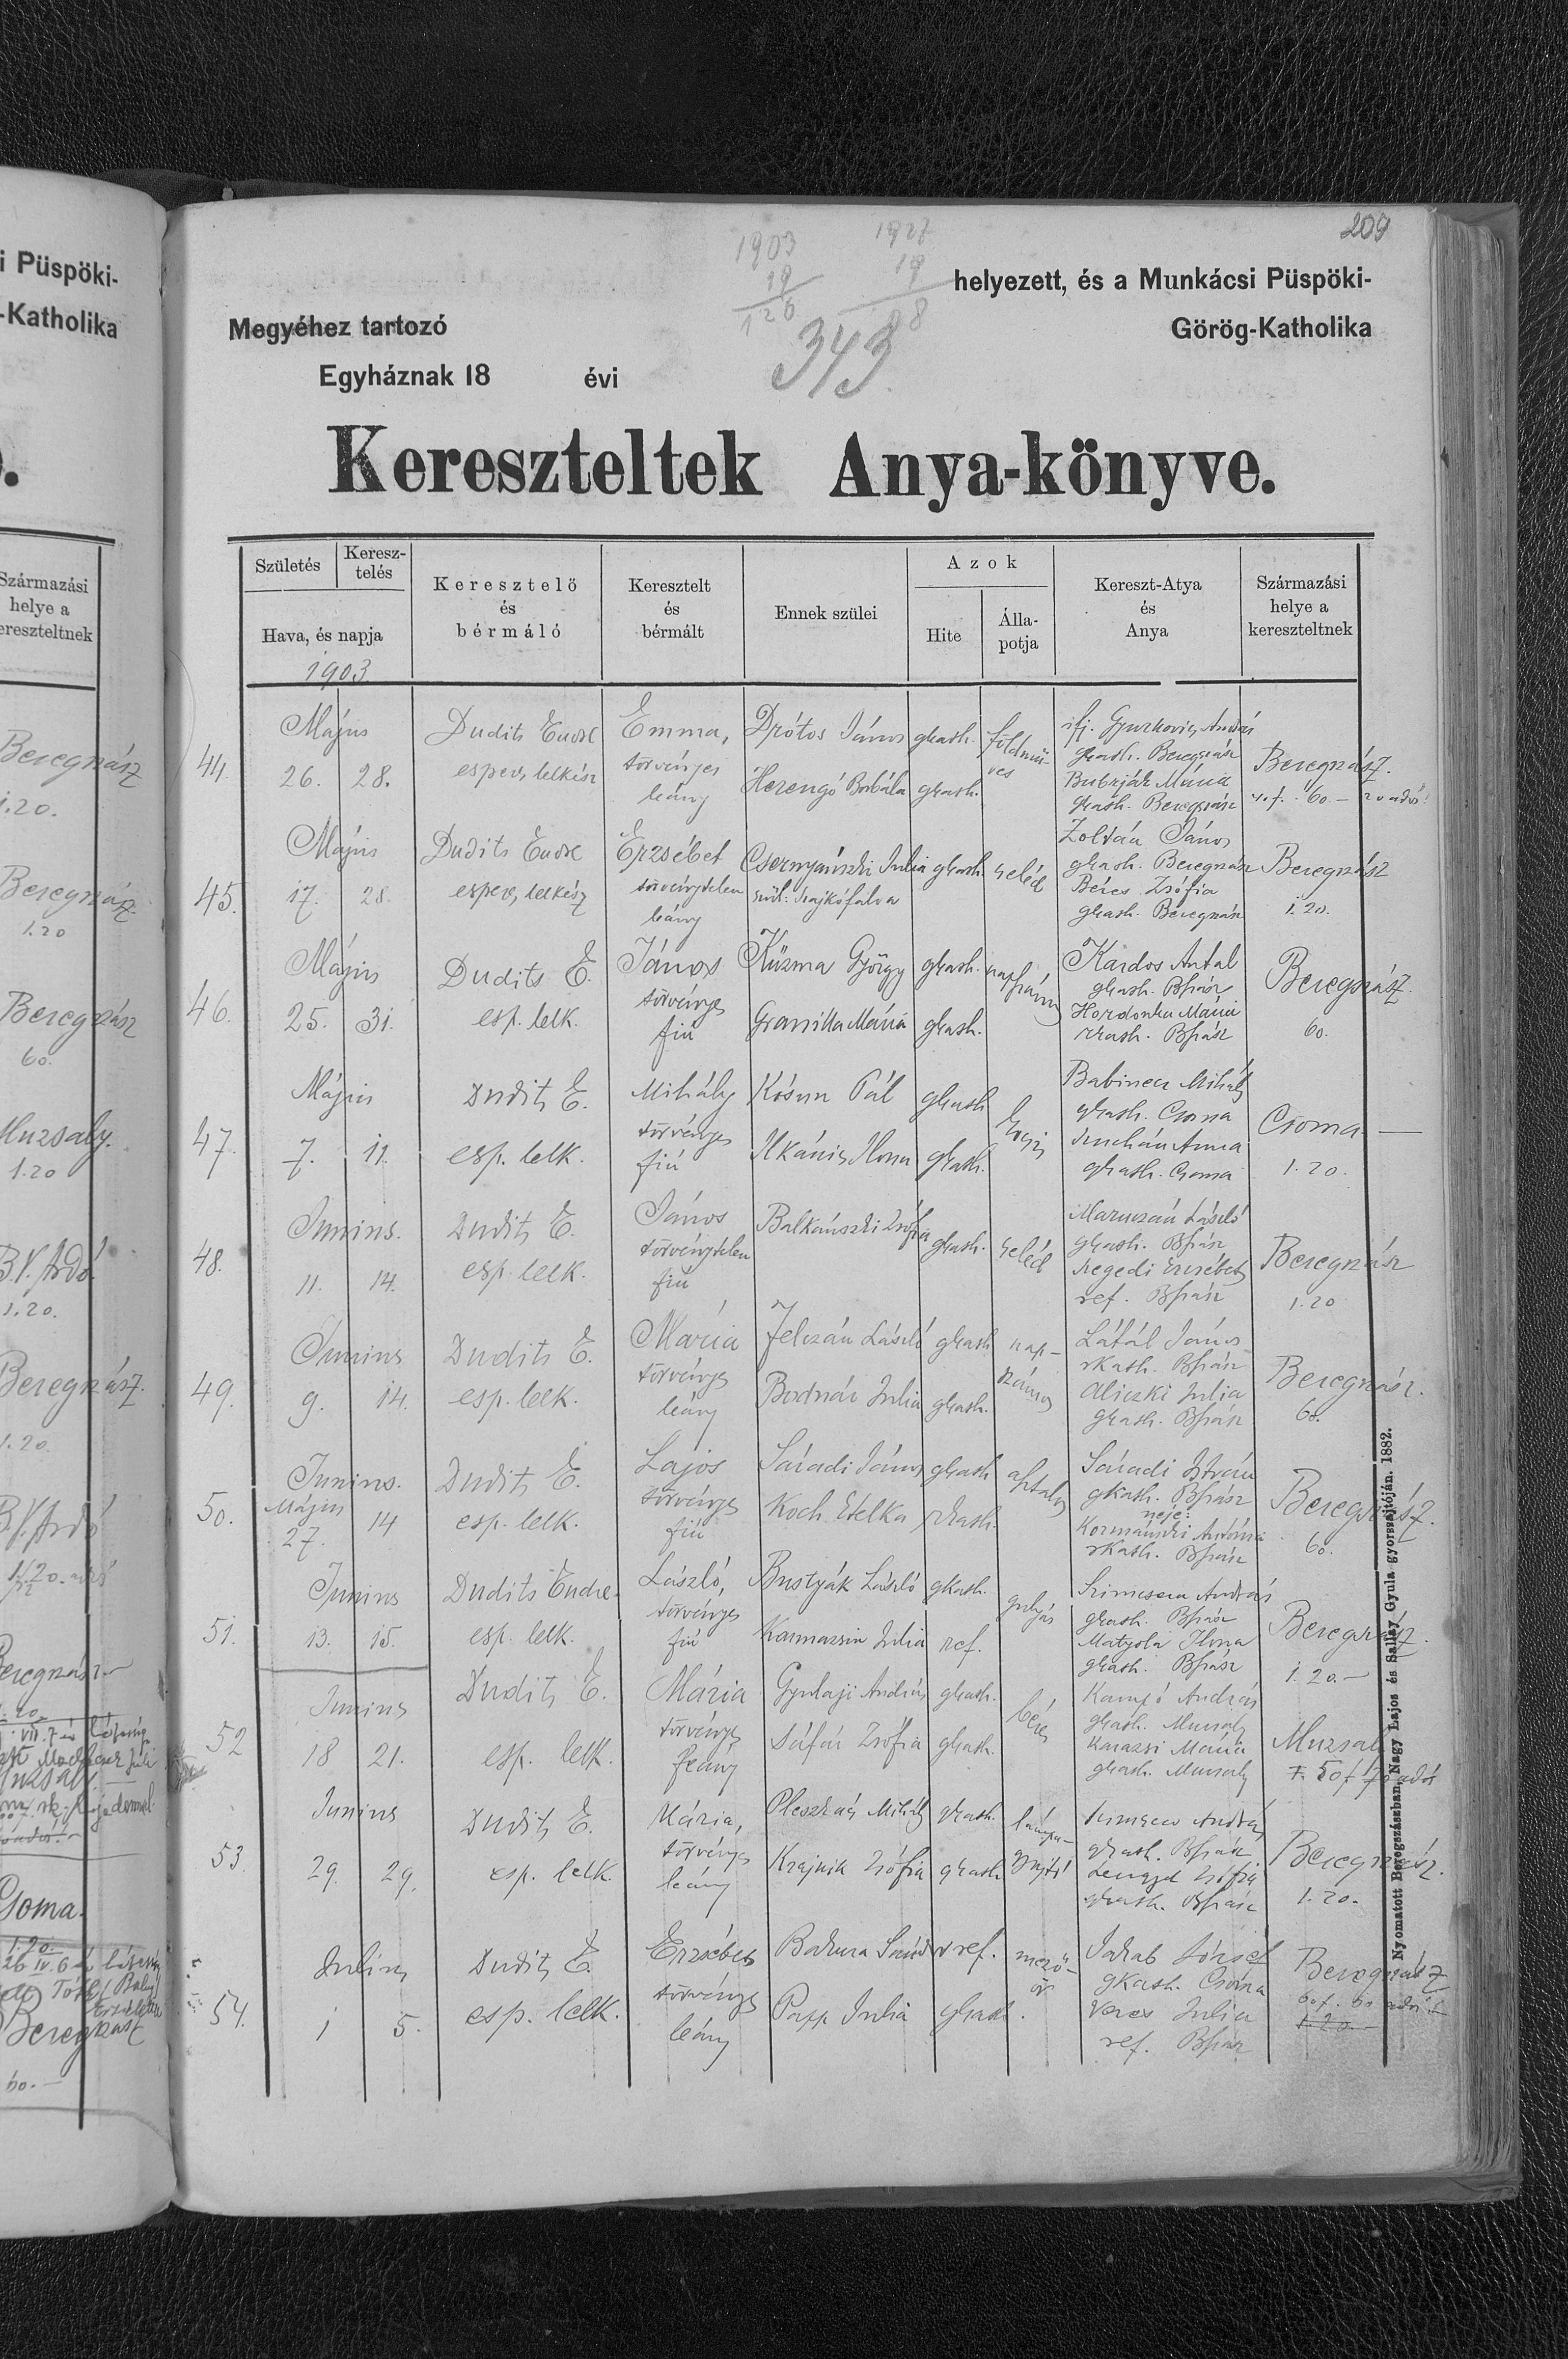 209
1903
19
126
1927
19
88
343
helyezett, és a Munkácsi Püspöki-
Megyéhez tartozó
Görög-Katholika
Egyháznak 18 évi
Kereszteltek Anya-könyve.
Születés
Keresz-
telés
Hava, és napja
1903
Keresztelő
és
bérmáló
Keresztelt
és
bérmált
Ennek szülei
Azok
Hite
Álla-
potja
Kereszt-Atya
és
Anya
Származási
helye a
kereszteltnek
44.
Május
26. 28.
Dudits Endre
esperes lelkész
Emma,
törvényes
leány
Drótos János gkath.
Herengó Borbála gkath.
földmű-
ves
ifj. Gyurkovics András
gkath. Beregszász
Bubrják Mária
gkath. Beregszász
Beregszász.
45.
Május
17. 28.
Dudits Endre
esperes, lelkész
Erzsébet
törvénytelen
leány
Csernyánszki Julia gkath.
cseléd
Zoltán János
gkath. Beregszász
Béres Zsófia
gkath. Beregszász
Beregszász
1.20.
46.
Május
25. 31.
Dudits E.
esp. lelk.
János
törvényes
fiú
Kuzma György gkath.
Granitta Mária gkath.
napszámos
Kardos Antal
gkath. Bszász
Hordonka Mária
rkath. Bszász
Beregszász.
60.
47.
Május
7. 11.
Dudits E.
esp. lelk.
Mihály
törvényes
fiú
Kósun Pál gkath
Ilkánics Ilona gkath.
Babinecz Mihály
gkath. Csoma
Anna
gkath. Csoma
Csoma —
1.20.
48.
Junius.
11. 14.
Dudits E.
esp. lelk.
János
törvénytelen
fiú
Balkánszki Zsófia
gkath.
cseléd
Maruczán László
gkath. Bszász
Szegedi Erzsébet
ref. Bszász
Beregszász
1.20
49.
Junius
9. 14.
Dudits E.
esp. lelk.
Mária
törvényes
leány
Jelczán László gkath
Bodnár Julia gkath.
nap-
számos
Látál János
rkath. Bszász
Aliczki Julia
gkath. Bszász
Beregszász.
60.
50.
Junius.
Május
27. 14
Dudits E.
esp. lelk.
Lajos
törvényes
fiú
Sáradi János gkath
Koch Etelka rkath.
asztalos
Sáradi István
gkath. Bszász
neje:
Kormánszki Antónia
rkath. Bszász
Beregszász.
60.
51.
Junius
13. 15.
Dudits Endre
esp. lelk.
László,
törvényes
fiú
Bustyák László gkath.
Karmazsin Julia ref.
gulyás
Szimcsera András
gkath. Bszász
Matyola Ilona
gkath. Bszász
Beregszász.
1.20.—
52
Junius
18 21.
Dudits E.
esp. lelk.
Mária
törvényes
leány
Gyulaji András gkath.
Sáfár Zsófia gkath.
béres
Kampó András
gkath. Muzsaly
Karazsi Mária
gkath. Muzsaly
Muzsaly
53.
Junius
29. 29.
Dudits E.
esp. lelk.
Mária,
törvényes
leány
Pleszkács Mihály gkath.
Krajnik Zsófia gkath
lámpa-
gyújtó
András
gkath. Bszász
Lengyel Zsófia
gkath. Bszász
Beregszász.
1.20.
54.
Julius
1 5.
Dudits E.
esp. lelk.
Erzsébet
törvényes
leány
Bakura Sándor ref.
Papp Julia gkath.
mező-
őr
Jakab József
gkath. Csoma
Veres Julia
ref. Bszász
Beregszász
1.20.
Nyomatott Beregszászban, Nagy Lajos és Sallay Gyula gyorssajtóján. 1882.
i Püspöki-
-Katholika
Származási
helye a
ereszteltnek
Beregszász
1.20.
Beregszász.
1.20
Beregszász
60.
Muzsaly.
1.20
B.V. Ardó.
1.20.
Beregszász.
1.20.
B.V. Ardó
Beregszász
Csoma.
Beregszász
60.—